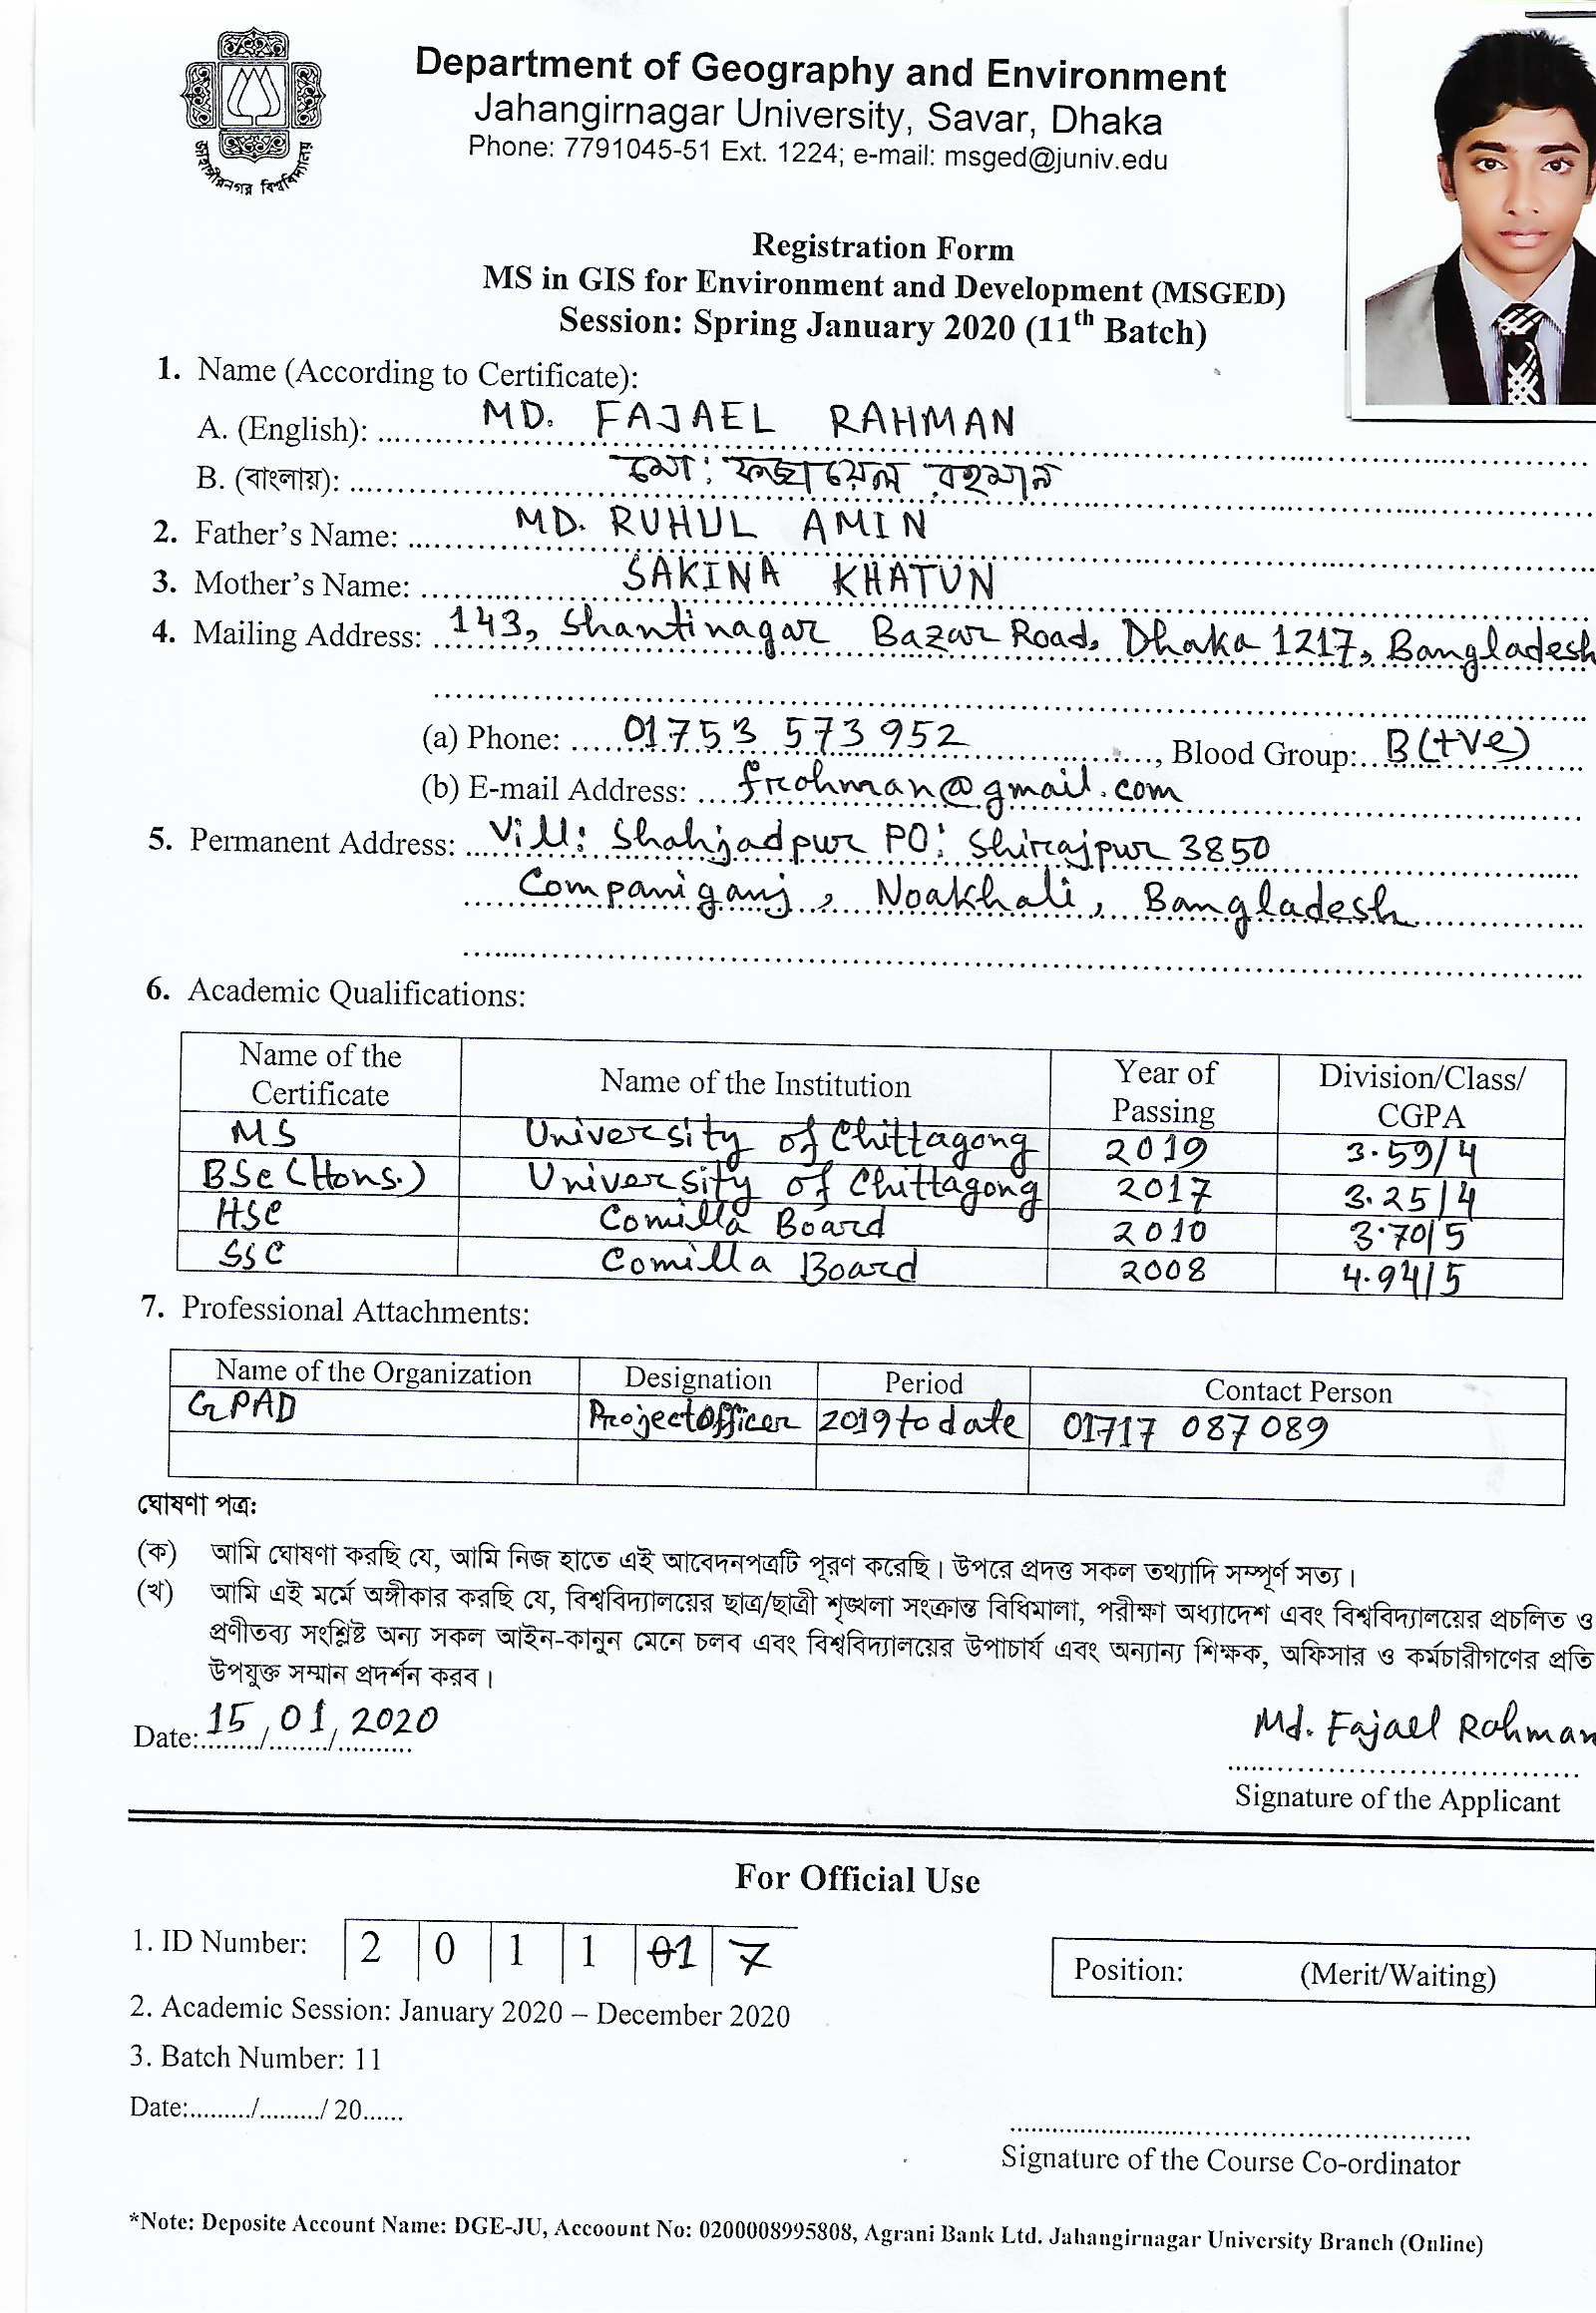 জাহাঙ্গীরনগর বিশ্ববিদ্যালয়
Department of Geography and Environment
Jahangirnagar University, Savar, Dhaka
Phone: 7791045-51 Ext. 1224; e-mail: msged@juniv.edu
Registration Form
MS in GIS for Environment and Development (MSGED)
Session: Spring January 2020 (11th Batch)
1. Name (According to Certificate):
A. (English): MD. FAJAEL RAHMAN
B. (বাংলায়): মো: ফজায়েল রহমান
2. Father's Name: MD. RUHUL AMIN
3. Mother's Name: SAKINA KHATUN
4. Mailing Address: 143, Shantinagar Bazar Road, Dhaka 1217, Bangladesh
(a) Phone: 01753 573952, Blood Group: B(+ve)
(b) E-mail Address: frohman@gmail.com
5. Permanent Address: Vill: Shahjadpur PO: Shirajpur 3850
Companiganj, Noakhali, Bangladesh
6. Academic Qualifications:
Name of the Certificate Name of the Institution Year of Passing Division/Class/ CGPA
MS University of Chittagong 2019 3.59/4
BSc (Hons.) University of Chittagong 2017 3.25/4
HSC Comilla Board 2010 3.70/5
SSC Comilla Board 2008 4.94/5
7. Professional Attachments:
Name of the Organization Designation Period Contact Person
GPAD Project Officer 2019 to date 01717 087089
ঘোষণা পত্র:
(ক) আমি ঘোষণা করছি যে, আমি নিজ হাতে এই আবেদনপত্রটি পূরণ করেছি। উপরে প্রদত্ত সকল তথ্যাদি সম্পূর্ণ সত্য।
(খ) আমি এই মর্মে অঙ্গীকার করছি যে, বিশ্ববিদ্যালয়ের ছাত্র/ছাত্রী শৃঙ্খলা সংক্রান্ত বিধিমালা, পরীক্ষা অধ্যাদেশ এবং বিশ্ববিদ্যালয়ের প্রচলিত ও
প্রণীতব্য সংশ্লিষ্ট অন্য সকল আইন-কানুন মেনে চলব এবং বিশ্ববিদ্যালয়ের উপাচার্য এবং অন্যান্য শিক্ষক, অফিসার ও কর্মচারীগণের প্রতি
উপযুক্ত সম্মান প্রদর্শন করব।
Date: 15/01/2020
Md. Fajael Rahman
Signature of the Applicant
For Official Use
1. ID Number: 2 0 1 1 01 7
Position: (Merit/Waiting)
2. Academic Session: January 2020 – December 2020
3. Batch Number: 11
Date:........./........./ 20......
Signature of the Course Co-ordinator
*Note: Deposite Account Name: DGE-JU, Accoount No: 0200008995808, Agrani Bank Ltd. Jahangirnagar University Branch (Online)